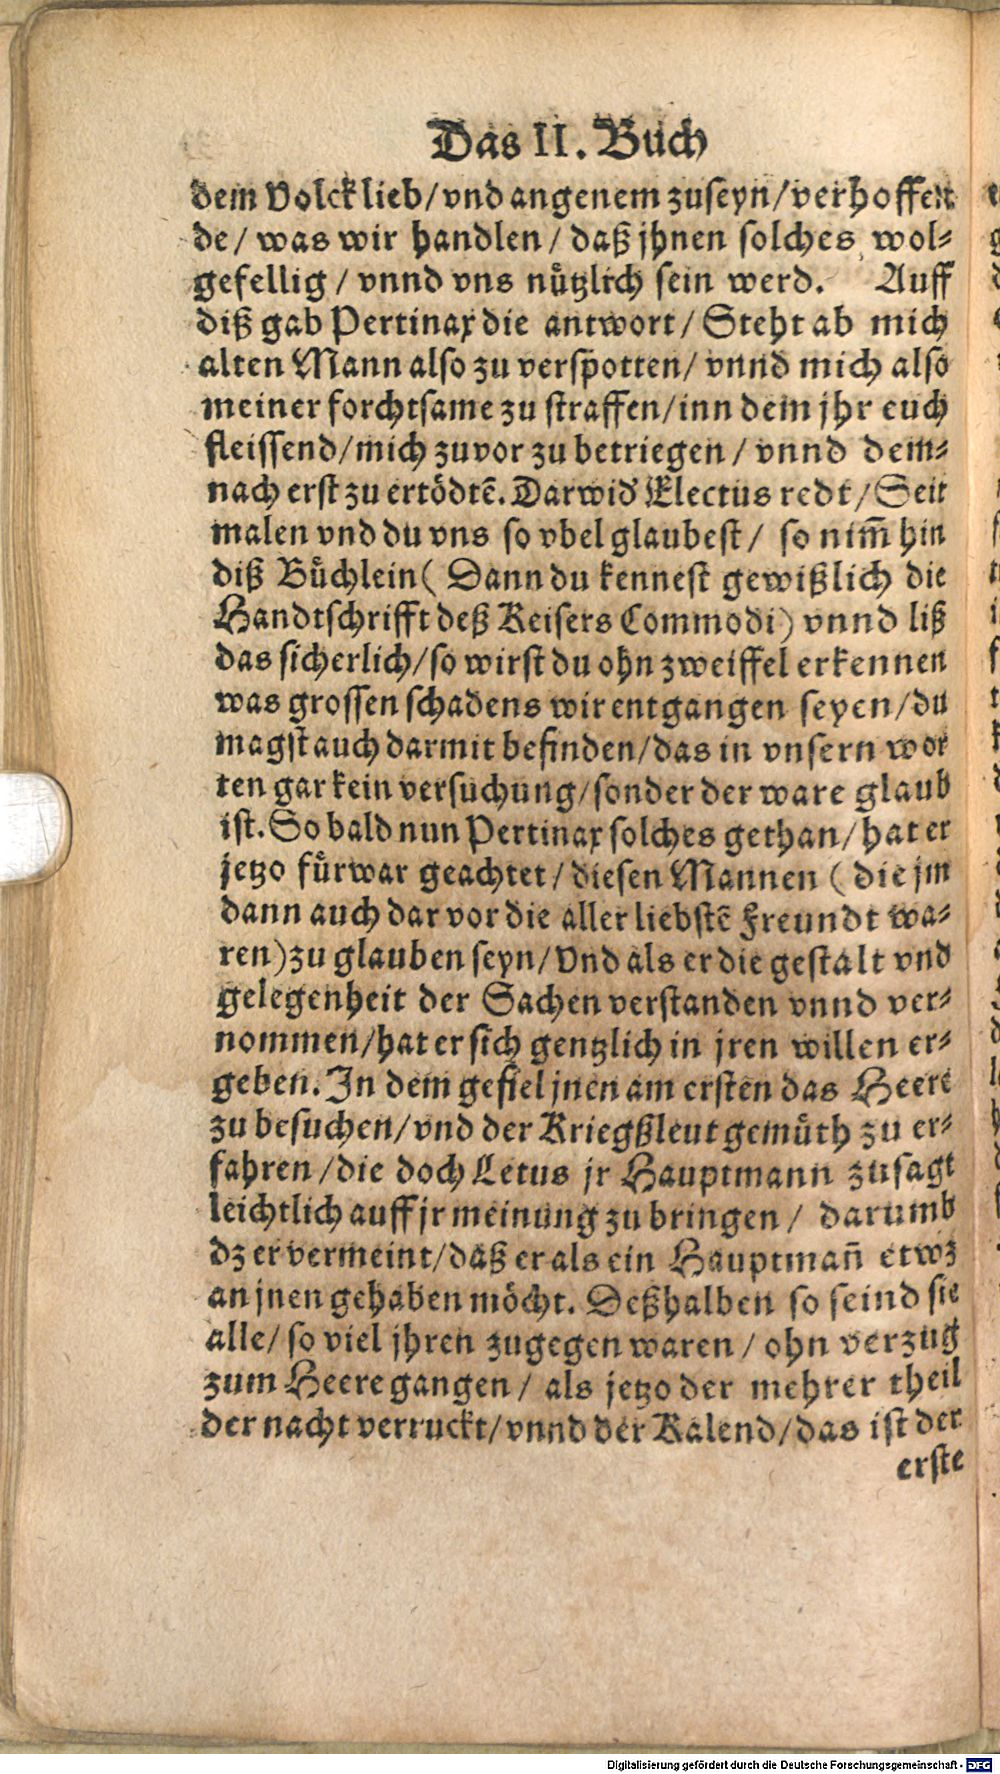 Das II. Buch
dem Volck lieb/ vnd angenem zuseyn/ verhoffen
de/ was wir handlen/ daß jhnen solches wol-
gefellig/ vnnd vns nützlich sein werd. Auff
diß gab Pertinax die antwort/ Steht ab mich
alten Mann also zu verspotten/ vnnd mich also
meiner forchtsame zu straffen/ inn dem jhr euch
fleissend/ mich zuvor zu betriegen/ vnnd dem-
nach erst zu ertödtẽ. Darwid' Electus redt/ Seit
malen vnd du vns so vbel glaubest/ so nim̃ hin
diß Büchlein (Dann du kennest gewißlich die
Handtschrifft deß Keisers Commodi) vnnd liß
das sicherlich/ so wirst du ohn zweiffel erkennen
was grossen schadens wir entgangen seyen/ du
magst auch darmit befinden/ das in vnsern wor
ten gar kein versuchung/ sonder der ware glaub
ist. So bald nun Pertinax solches gethan/ hat er
jetzo fürwar geachtet/ diesen Mannen (die jm
dann auch dar vor die aller liebstẽ Freundt wa-
ren) zu glauben seyn/ Vnd als er die gestalt vnd
gelegenheit der Sachen verstanden vnnd ver-
nommen/ hat er sich gentzlich in jren willen er-
geben. In dem gefiel jnen am ersten das Heere
zu besuchen/ vnd der Kriegßleut gemüth zu er-
fahren/ die doch Letus jr Hauptmann zusagt
leichtlich auff jr meinung zu bringen/ darumb
dz er vermeint/ daß er als ein Hauptmañ etwz
an jnen gehaben möcht. Deßhalben so seind sie
alle/ so viel jhren zugegen waren/ ohn verzug
zum Heere gangen/ als jetzo der mehrer theil
der nacht verruckt/ vnnd der Kalend/ das ist der
erste
Digitalisierung gefördert durch die Deutsche Forschungsgemeinschaft - DFG